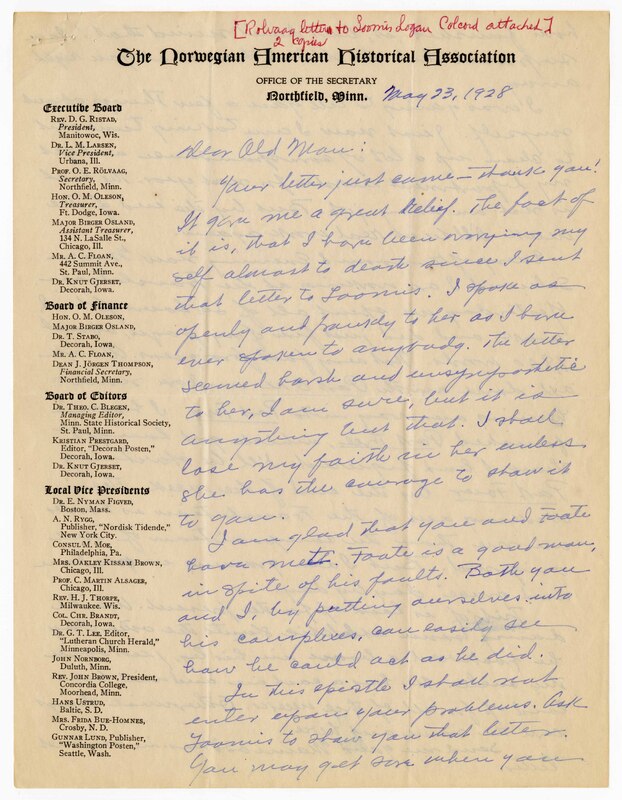 [Rolvaag letter to Loomis Logan Colcord attached]
2 copies
The Norwegian American Historical Association
OFFICE OF THE SECRETARY
Northfield, Minn.
May 23, 1928
Executive Board
REV. D. G. RISTAD,
President,
Manitowoc, Wis.
DR. L. M. LARSEN,
Vice President,
Urbana, Ill.
PROF. O. E. RÖLVAAG,
Secretary,
Northfield, Minn.
HON. O. M. OLESON,
Treasurer,
Ft. Dodge, Iowa.
MAJOR BIRGER OSLAND,
Assistant Treasurer,
134 N. LaSalle St.,
Chicago, Ill.
MR. A. C. FLOAN,
442 Summit Ave.,
St. Paul, Minn.
DR. KNUT GJERSET,
Decorah, Iowa.
Board of Finance
HON. O. M. OLESON,
MAJOR BIRGER OSLAND,
DR. T. STABO,
Decorah, Iowa.
MR. A. C. FLOAN,
DEAN J. JÖRGEN THOMPSON,
Financial Secretary,
Northfield, Minn.
Board of Editors
DR. THEO. C. BLEGEN,
Managing Editor,
Minn. State Historical Society,
St. Paul, Minn.
KRISTIAN PRESTGARD,
Editor, "Decorah Posten,"
Decorah, Iowa.
DR. KNUT GJERSET,
Decorah, Iowa.
Local Vice Presidents
DR. E. NYMAN FIGVED,
Boston, Mass.
A. N. RYGG,
Publisher, "Nordisk Tidende,"
New York City.
CONSUL M. MOE,
Philadelphia, Pa.
MRS. OAKLEY KISSAM BROWN,
Chicago, Ill.
PROF. C. MARTIN ALSAGER,
Chicago, Ill.
REV. H. J. THORPE,
Milwaukee. Wis.
COL. CHR. BRANDT,
Decorah, Iowa.
DR. G. T. LEE, Editor,
"Lutheran Church Herald,"
Minneapolis, Minn.
JOHN NORNBORG,
Duluth, Minn.
REV. JOHN BROWN, President,
Concordia College,
Moorhead, Minn.
HANS USTRUD,
Baltic, S. D.
MRS. FRIDA BUE-HOMNES,
Crosby, N. D.
GUNNAR LUND, Publisher,
"Washington Posten,"
Seattle, Wash.
Dear Old Man:
Your letter just came – thank you!
It gave me a great relief. The fact of
it is, that I have been worrying my
self almost to death since I sent
that letter to Loomis. I spoke as
openly and frankly to her as I have
ever spoken to anybody. The letter
seemed harsh and unsympathetic
to her, I am sure, but it is
anything but that. I shall
lose my faith in her unless
she has the courage to show it
to you.
I am glad that you and Foate
have met. Foate is a good man,
in spite of his faults. Both you
and I, by putting ourselves into
his complexes, can easily see
how he could act as he did.
In this epistle I shall not
enter upon your problems. Ask
Loomis to show you that letter.
You may get sore when you